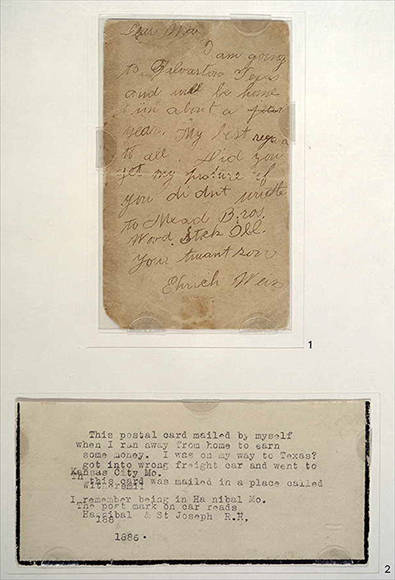 Dear Ma
I am going
to Galvaston Texas
and will be home
in about a
year. My best regards
to all. Did you
get my picture if
you didnt write
to Mead Bros.
Wood Stck Ill.
Your truant son
Ehrich Weiss
1
This postal card mailed by myself
when I ran away from home to earn
some money. I was on my way to Texas?
got into wrong freight car and went to
Kansas City Mo.
this card was mailed in a place called
I remember being in Ha nibal Mo.
The post mark on car reads
Ha nibal & St Joseph R.R.
188
1886.
2